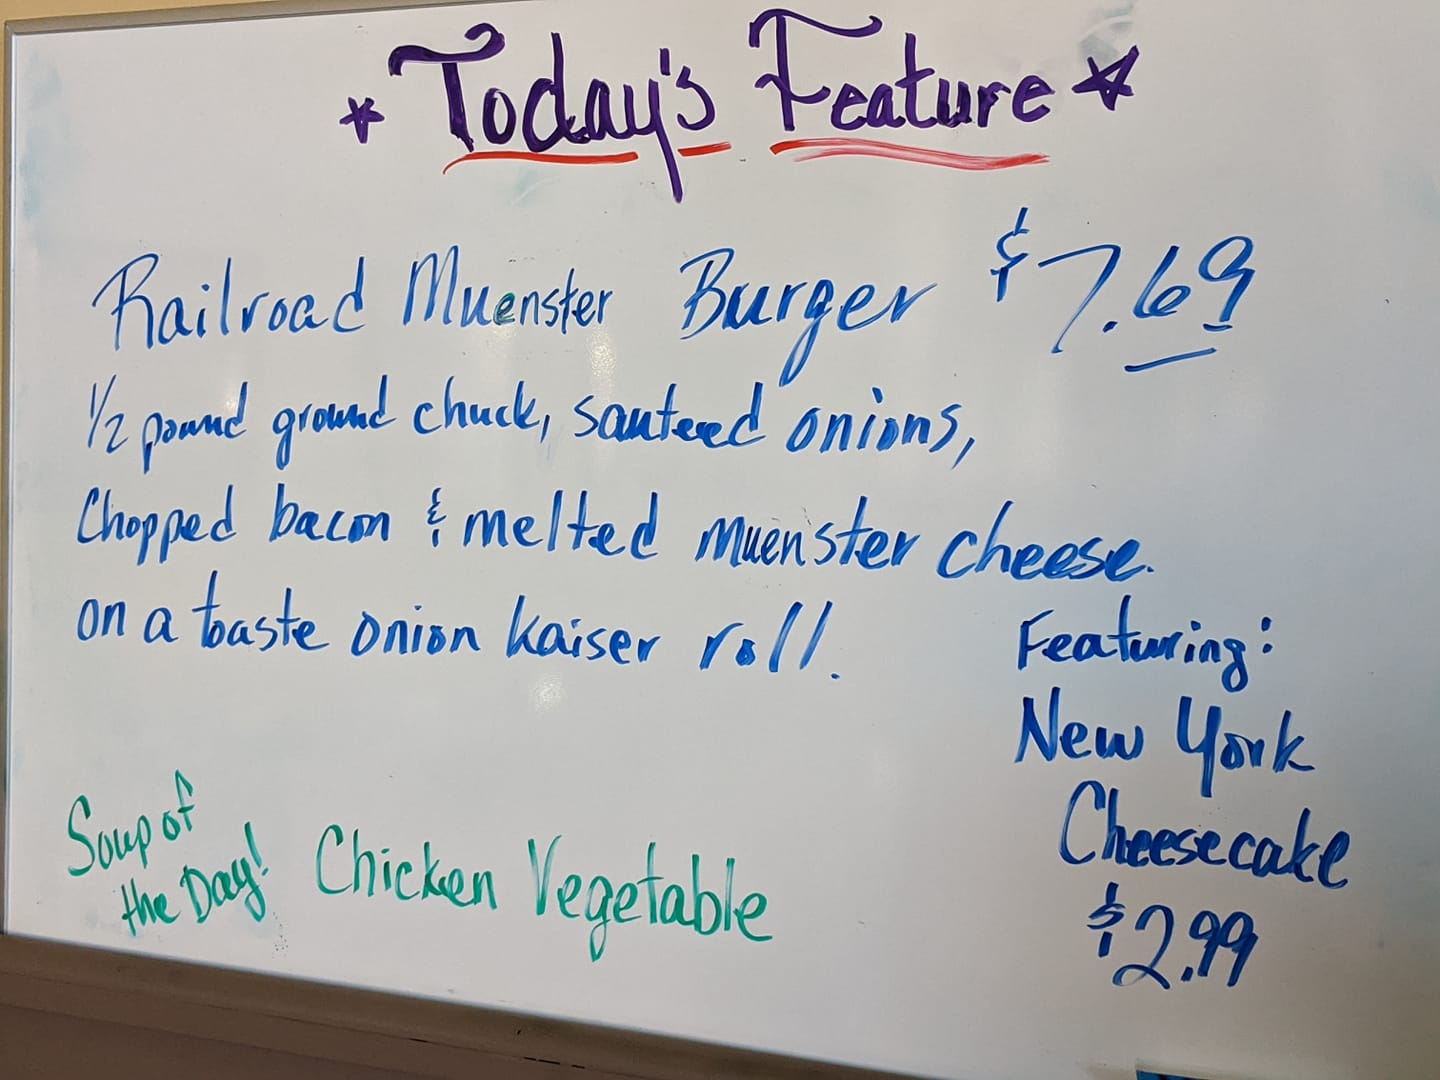 Today's Feature
Railroad Muenster Burger $7.69
1/2 pound ground chuck, sauteed onions,
Chopped bacon & melted muenster cheese.
on a toaste onion kaiser roll.
Featuring:
New York
Cheesecake
$2.99
Soup of
the Day!
Chicken Vegetable